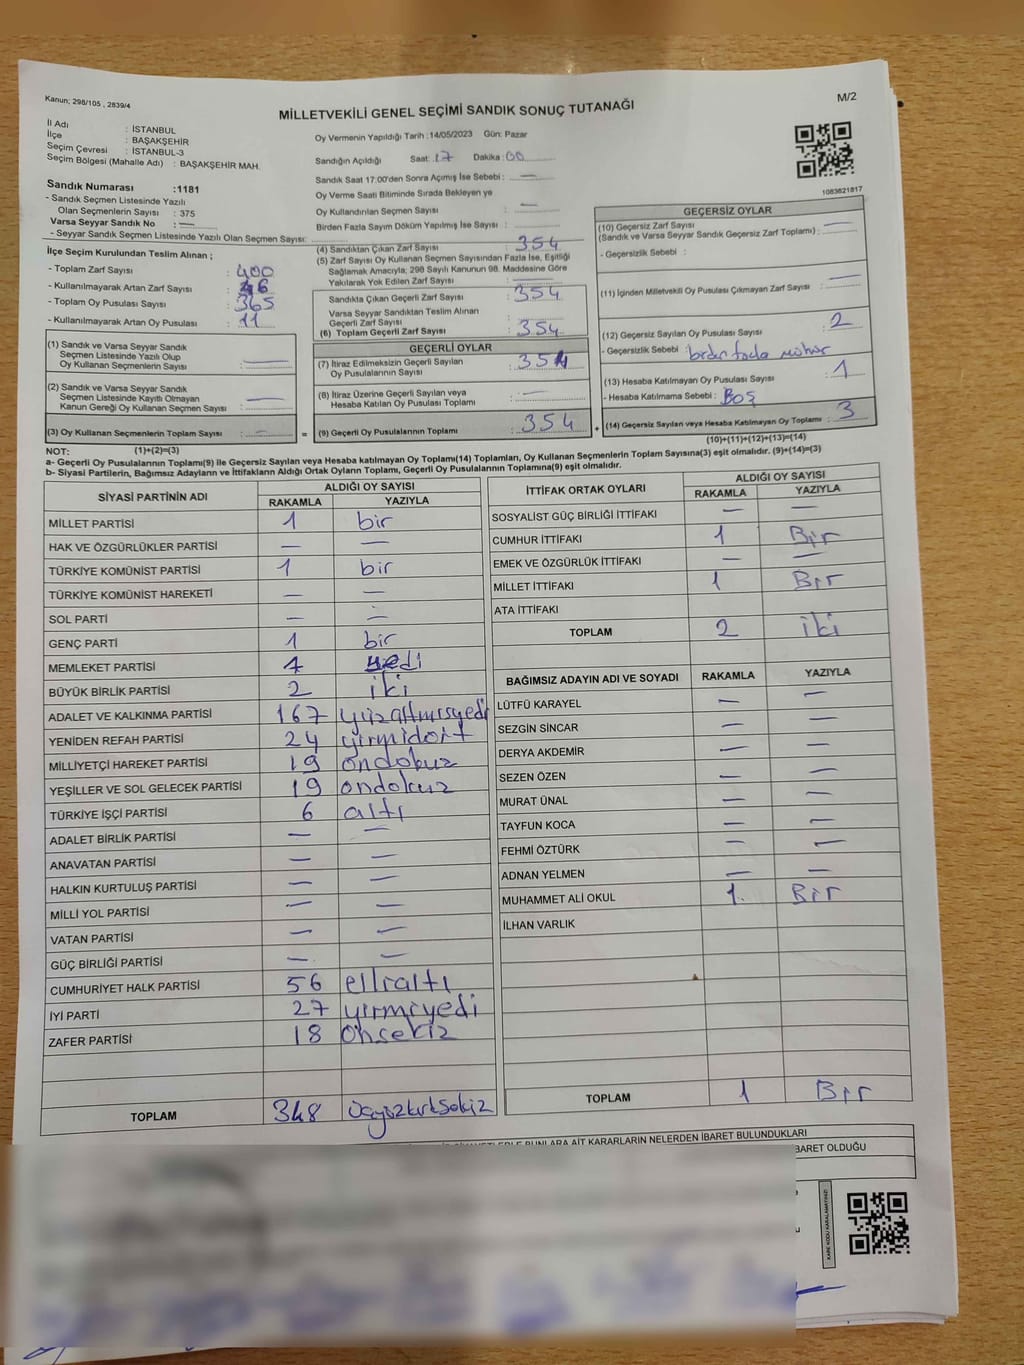 Kanun; 298/105 , 2839/4
MİLLETVEKİLİ GENEL SEÇİMİ SANDIK SONUÇ TUTANAĞI
M/2
İl Adı : İSTANBUL
İlçe : BAŞAKŞEHİR
Seçim Çevresi : İSTANBUL-3
Seçim Bölgesi (Mahalle Adı) : BAŞAKŞEHİR MAH.
Sandık Numarası :1181
- Sandık Seçmen Listesinde Yazılı
Olan Seçmenlerin Sayısı : 375
Varsa Seyyar Sandık No : —
- Seyyar Sandık Seçmen Listesinde Yazılı Olan Seçmen Sayısı:
Oy Vermenin Yapıldığı Tarih :14/05/2023 Gün: Pazar
Sandığın Açıldığı Saat: 17 Dakika: 00
Sandık Saat 17:00'den Sonra Açımış İse Sebebi : —
Oy Verme Saati Bitiminde Sırada Bekleyen ve
Oy Kullandırılan Seçmen Sayısı : —
Birden Fazla Sayım Döküm Yapılmış İse Sayısı :
1083621817
İlçe Seçim Kurulundan Teslim Alınan ;
- Toplam Zarf Sayısı : 400
- Kullanılmayarak Artan Zarf Sayısı : 46
- Toplam Oy Pusulası Sayısı : 365
- Kullanılmayarak Artan Oy Pusulası : 11
(1) Sandık ve Varsa Seyyar Sandık
Seçmen Listesinde Yazılı Olup
Oy Kullanan Seçmenlerin Sayısı : —
(2) Sandık ve Varsa Seyyar Sandık
Seçmen Listesinde Kayıtlı Olmayan
Kanun Gereği Oy Kullanan Seçmen Sayısı : —
(3) Oy Kullanan Seçmenlerin Toplam Sayısı : —
(1)+(2)=(3)
(4) Sandıktan Çıkan Zarf Sayısı : 354
(5) Zarf Sayısı Oy Kullanan Seçmen Sayısından Fazla İse, Eşitliği
Sağlamak Amacıyla; 298 Sayılı Kanunun 98. Maddesine Göre
Yakılarak Yok Edilen Zarf Sayısı : —
Sandıkta Çıkan Geçerli Zarf Sayısı : 354
Varsa Seyyar Sandıktan Teslim Alınan
Geçerli Zarf Sayısı :
(6) Toplam Geçerli Zarf Sayısı : 354
GEÇERLİ OYLAR
(7) İtiraz Edilmeksizin Geçerli Sayılan
Oy Pusulalarının Sayısı : 351
(8) İtiraz Üzerine Geçerli Sayılan veya
Hesaba Katılan Oy Pusulası Toplamı : —
= (9) Geçerli Oy Pusulalarının Toplamı : 354 +
GEÇERSİZ OYLAR
(10) Geçersiz Zarf Sayısı
(Sandık ve Varsa Seyyar Sandık Geçersiz Zarf Toplamı) : —
- Geçersizlik Sebebi :
(11) İçinden Milletvekili Oy Pusulası Çıkmayan Zarf Sayısı : —
(12) Geçersiz Sayılan Oy Pusulası Sayısı : 2
- Geçersizlik Sebebi : birden fazla mühür
(13) Hesaba Katılmayan Oy Pusulası Sayısı : 1
- Hesaba Katılmama Sebebi : BOŞ
(14) Geçersiz Sayılan veya Hesaba Katılmayan Oy Toplamı : 3
(10)+(11)+(12)+(13)=(14)
NOT:
a- Geçerli Oy Pusulalarının Toplamı(9) ile Geçersiz Sayılan veya Hesaba Katılmayan Oy Toplamı(14) Toplamları, Oy Kullanan Seçmenlerin Toplam Sayısına(3) eşit olmalıdır. (9)+(14)=(3)
b- Siyasi Partilerin, Bağımsız Adayların ve İttifakların Aldığı Ortak Oyların Toplamı, Geçerli Oy Pusulalarının Toplamına(9) eşit olmalıdır.
SİYASİ PARTİNİN ADI ALDIĞI OY SAYISI
RAKAMLA YAZIYLA
MİLLET PARTİSİ 1 bir
HAK VE ÖZGÜRLÜKLER PARTİSİ — —
TÜRKİYE KOMÜNİST PARTİSİ 1 bir
TÜRKİYE KOMÜNİST HAREKETİ — —
SOL PARTİ — —
GENÇ PARTİ 1 bir
MEMLEKET PARTİSİ 7 yedi
BÜYÜK BİRLİK PARTİSİ 2 iki
ADALET VE KALKINMA PARTİSİ 167 yüzaltmışyedi
YENİDEN REFAH PARTİSİ 24 yirmidört
MİLLİYETÇİ HAREKET PARTİSİ 19 ondokuz
YEŞİLLER VE SOL GELECEK PARTİSİ 19 ondokuz
TÜRKİYE İŞÇİ PARTİSİ 6 altı
ADALET BİRLİK PARTİSİ — —
ANAVATAN PARTİSİ — —
HALKIN KURTULUŞ PARTİSİ — —
MİLLİ YOL PARTİSİ — —
VATAN PARTİSİ — —
GÜÇ BİRLİĞİ PARTİSİ — —
CUMHURİYET HALK PARTİSİ 56 ellialtı
İYİ PARTİ 27 yirmiyedi
ZAFER PARTİSİ 18 onsekiz
TOPLAM 348 üçyüzkırksekiz
İTTİFAK ORTAK OYLARI ALDIĞI OY SAYISI
RAKAMLA YAZIYLA
SOSYALİST GÜÇ BİRLİĞİ İTTİFAKI — —
CUMHUR İTTİFAKI 1 Bir
EMEK VE ÖZGÜRLÜK İTTİFAKI — —
MİLLET İTTİFAKI 1 Bir
ATA İTTİFAKI
TOPLAM 2 iki
BAĞIMSIZ ADAYIN ADI VE SOYADI RAKAMLA YAZIYLA
LÜTFÜ KARAYEL — —
SEZGİN SİNCAR — —
DERYA AKDEMİR — —
SEZEN ÖZEN — —
MURAT ÜNAL — —
TAYFUN KOCA — —
FEHMİ ÖZTÜRK — —
ADNAN YELMEN — —
MUHAMMET ALİ OKUL 1. Bir
İLHAN VARLIK
TOPLAM 1 Bir
BUNLARA AİT KARARLARIN NELERDEN İBARET BULUNDUKLARI
BARET OLDUĞU
KARE KODU KARALAMAYINIZ!